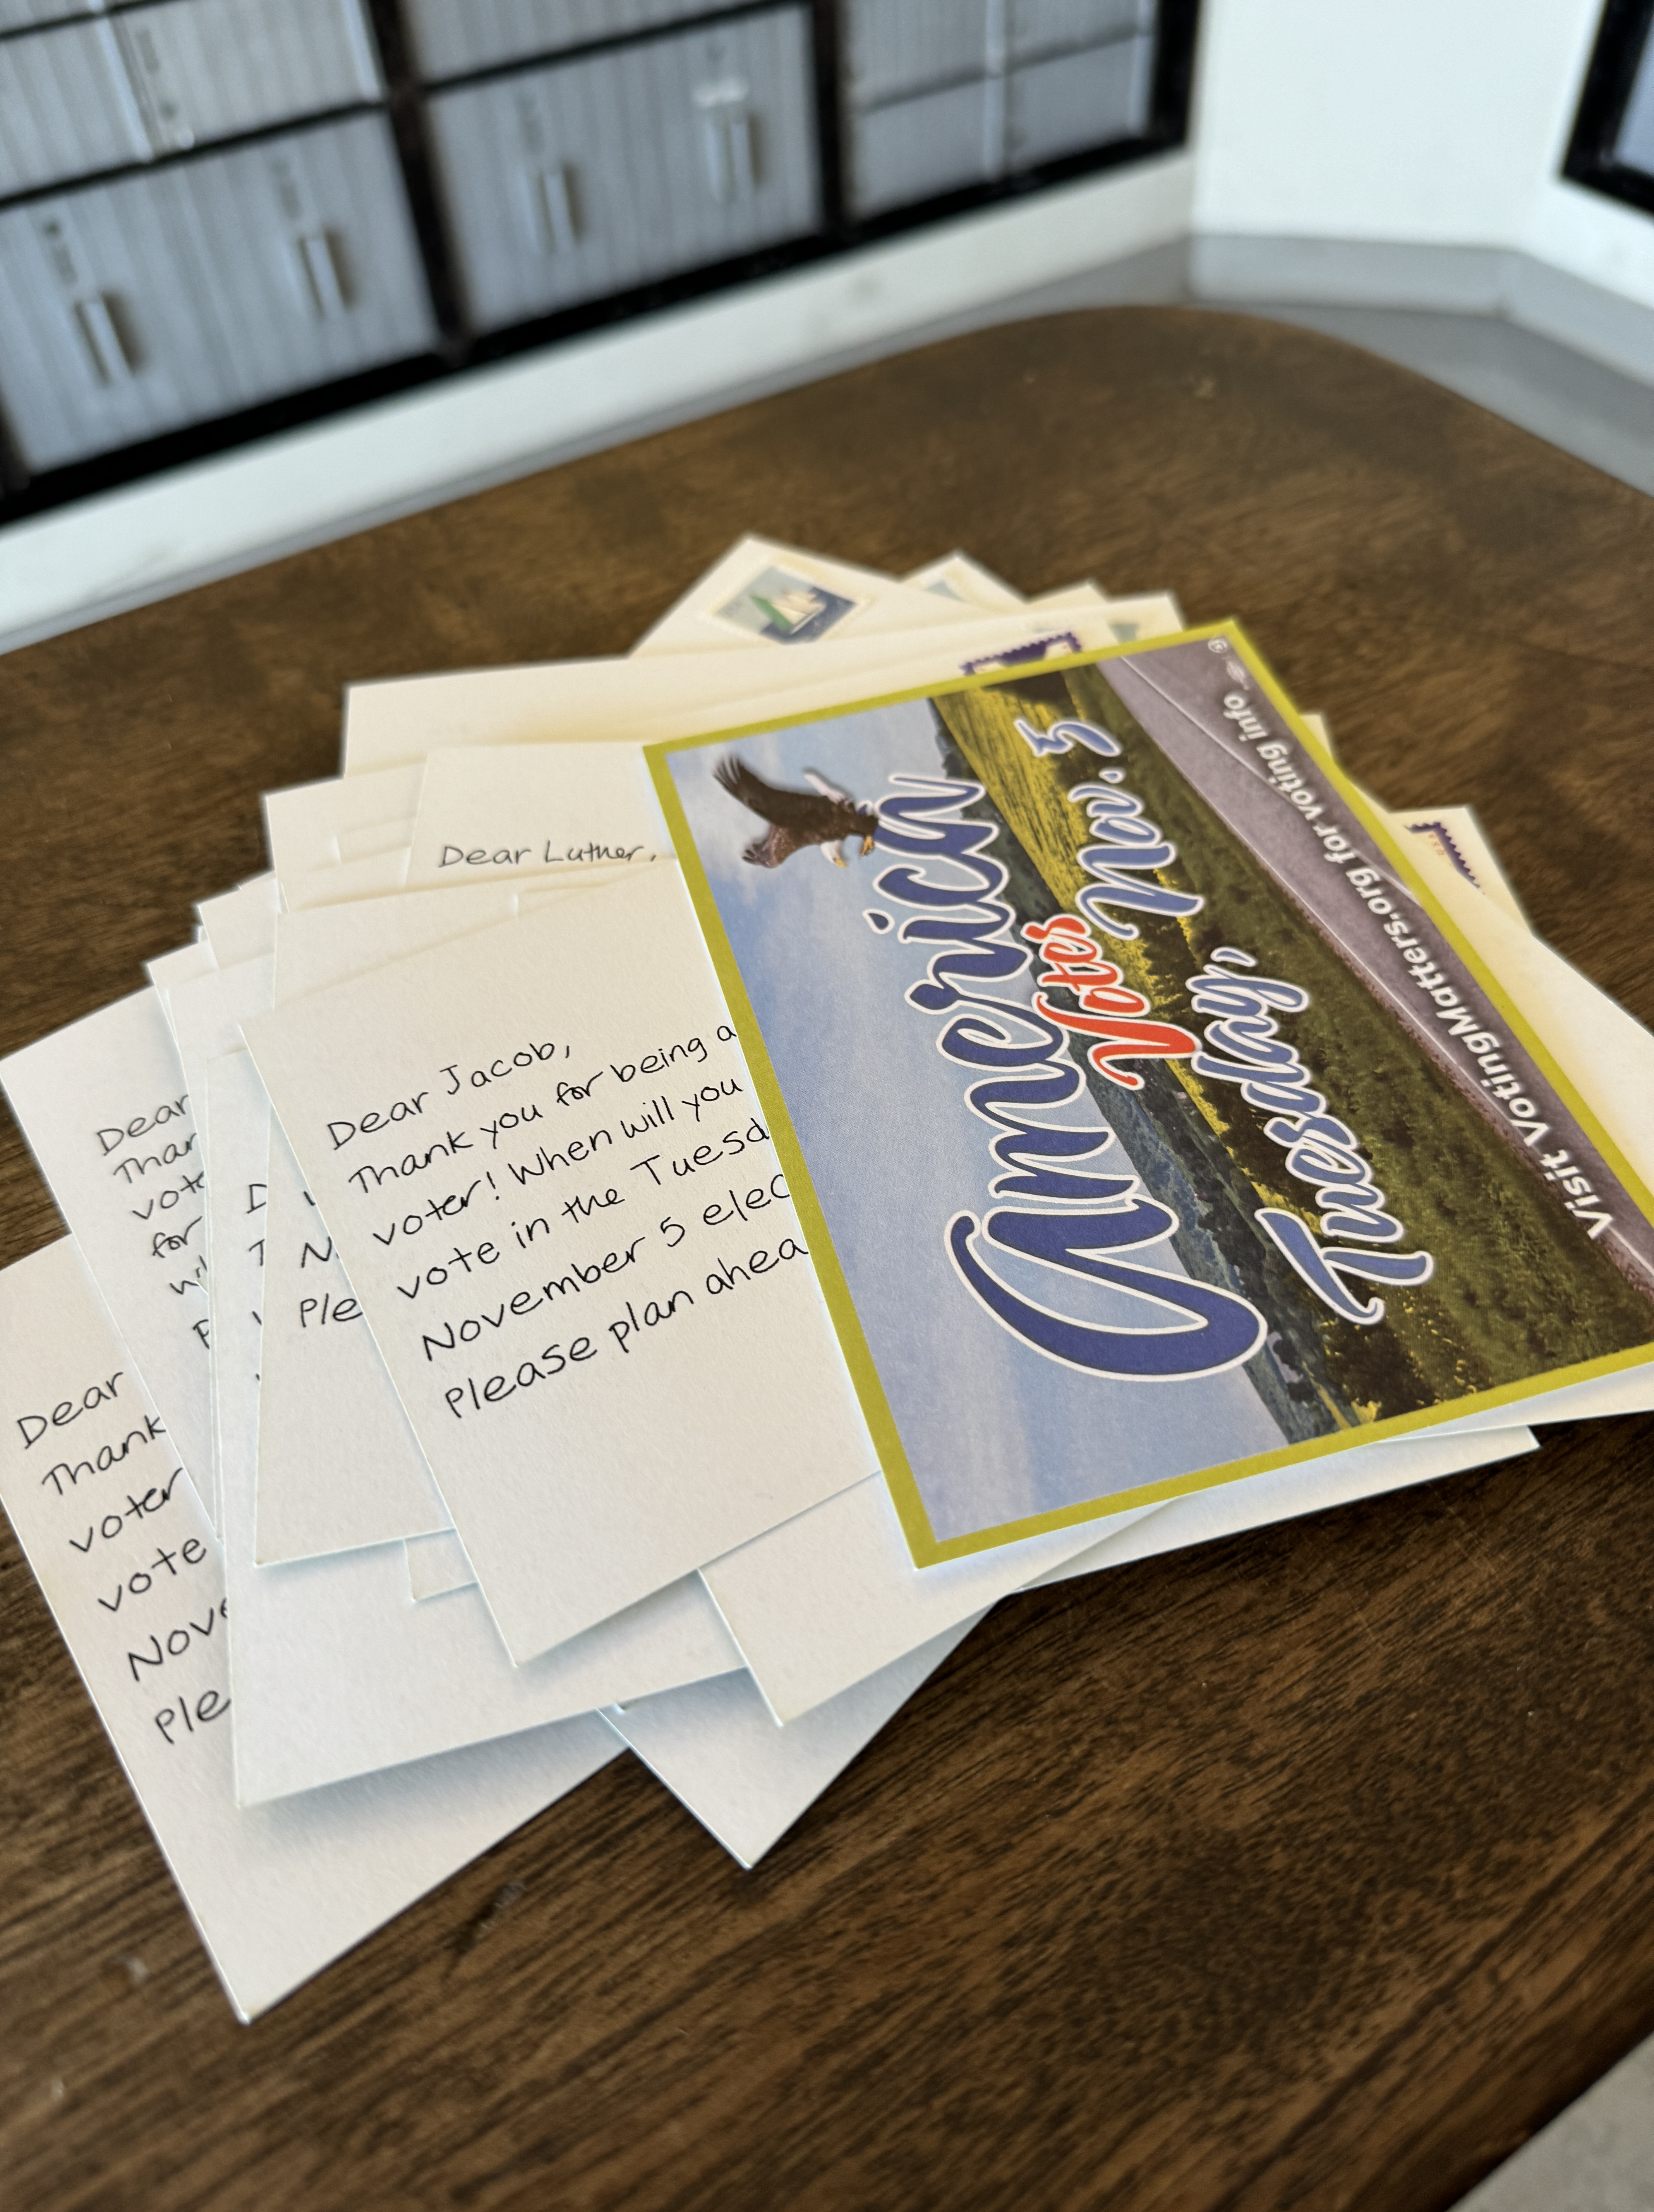 Dear Luther,
Dear Jacob,
Thank you for being a
voter! When will you
vote in the Tuesd
November 5 elec
Please plan ahea
America
Votes
Tuesday, Nov. 5
Visit VotingMatters.org for voting info
Dear
Than
vote
for
D
T
N
Ple
Dear
Thank
voter
vote
Nove
Ple